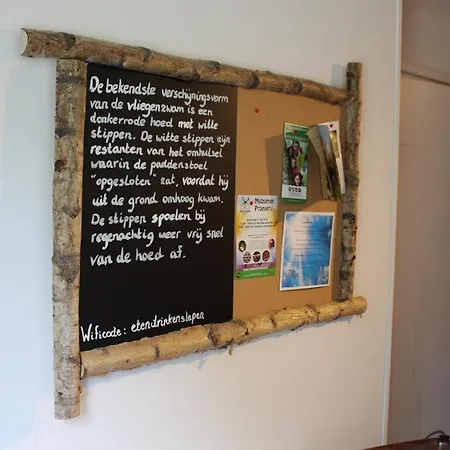 De bekendste verschijningsvorm
van de vliegenzwam is een
donkerrode hoed met witte
stippen. De witte stippen zijn
restanten van het omhulsel
waarin de paddenstoel
"opgesloten" zat, voordat hij
uit de grond omhoog kwam.
De stippen spoelen bij
regenachtig weer vrij snel
van de hoed af.
Wificode: etendrinkenslapen
Midzomer
Proeverij